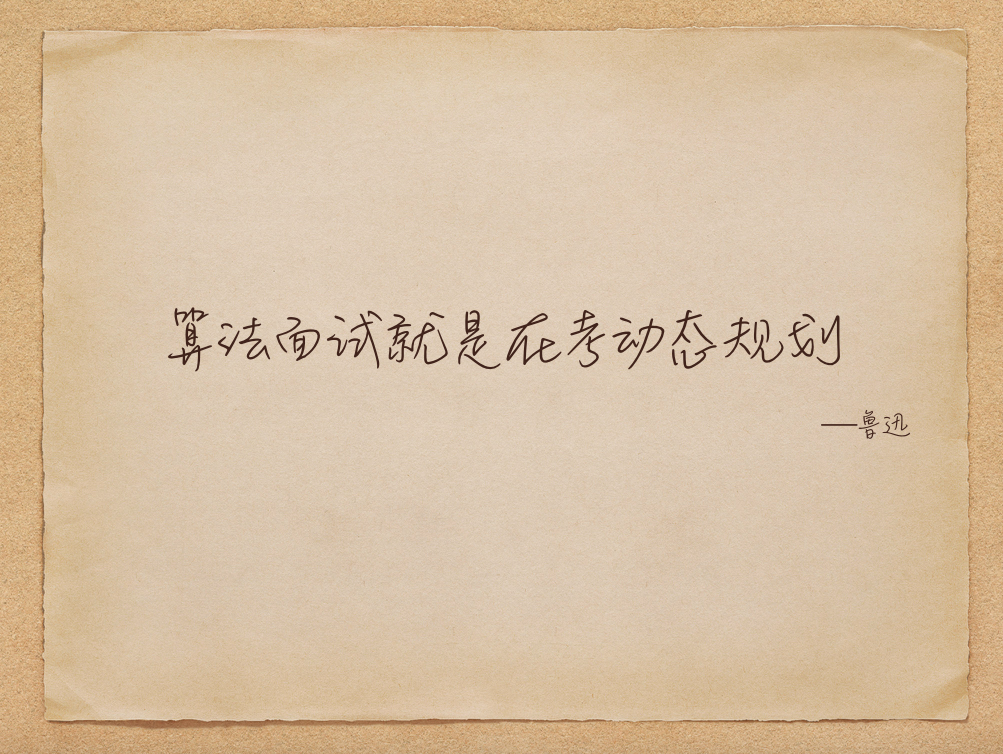 算法面试就是在考动态规划
——鲁迅